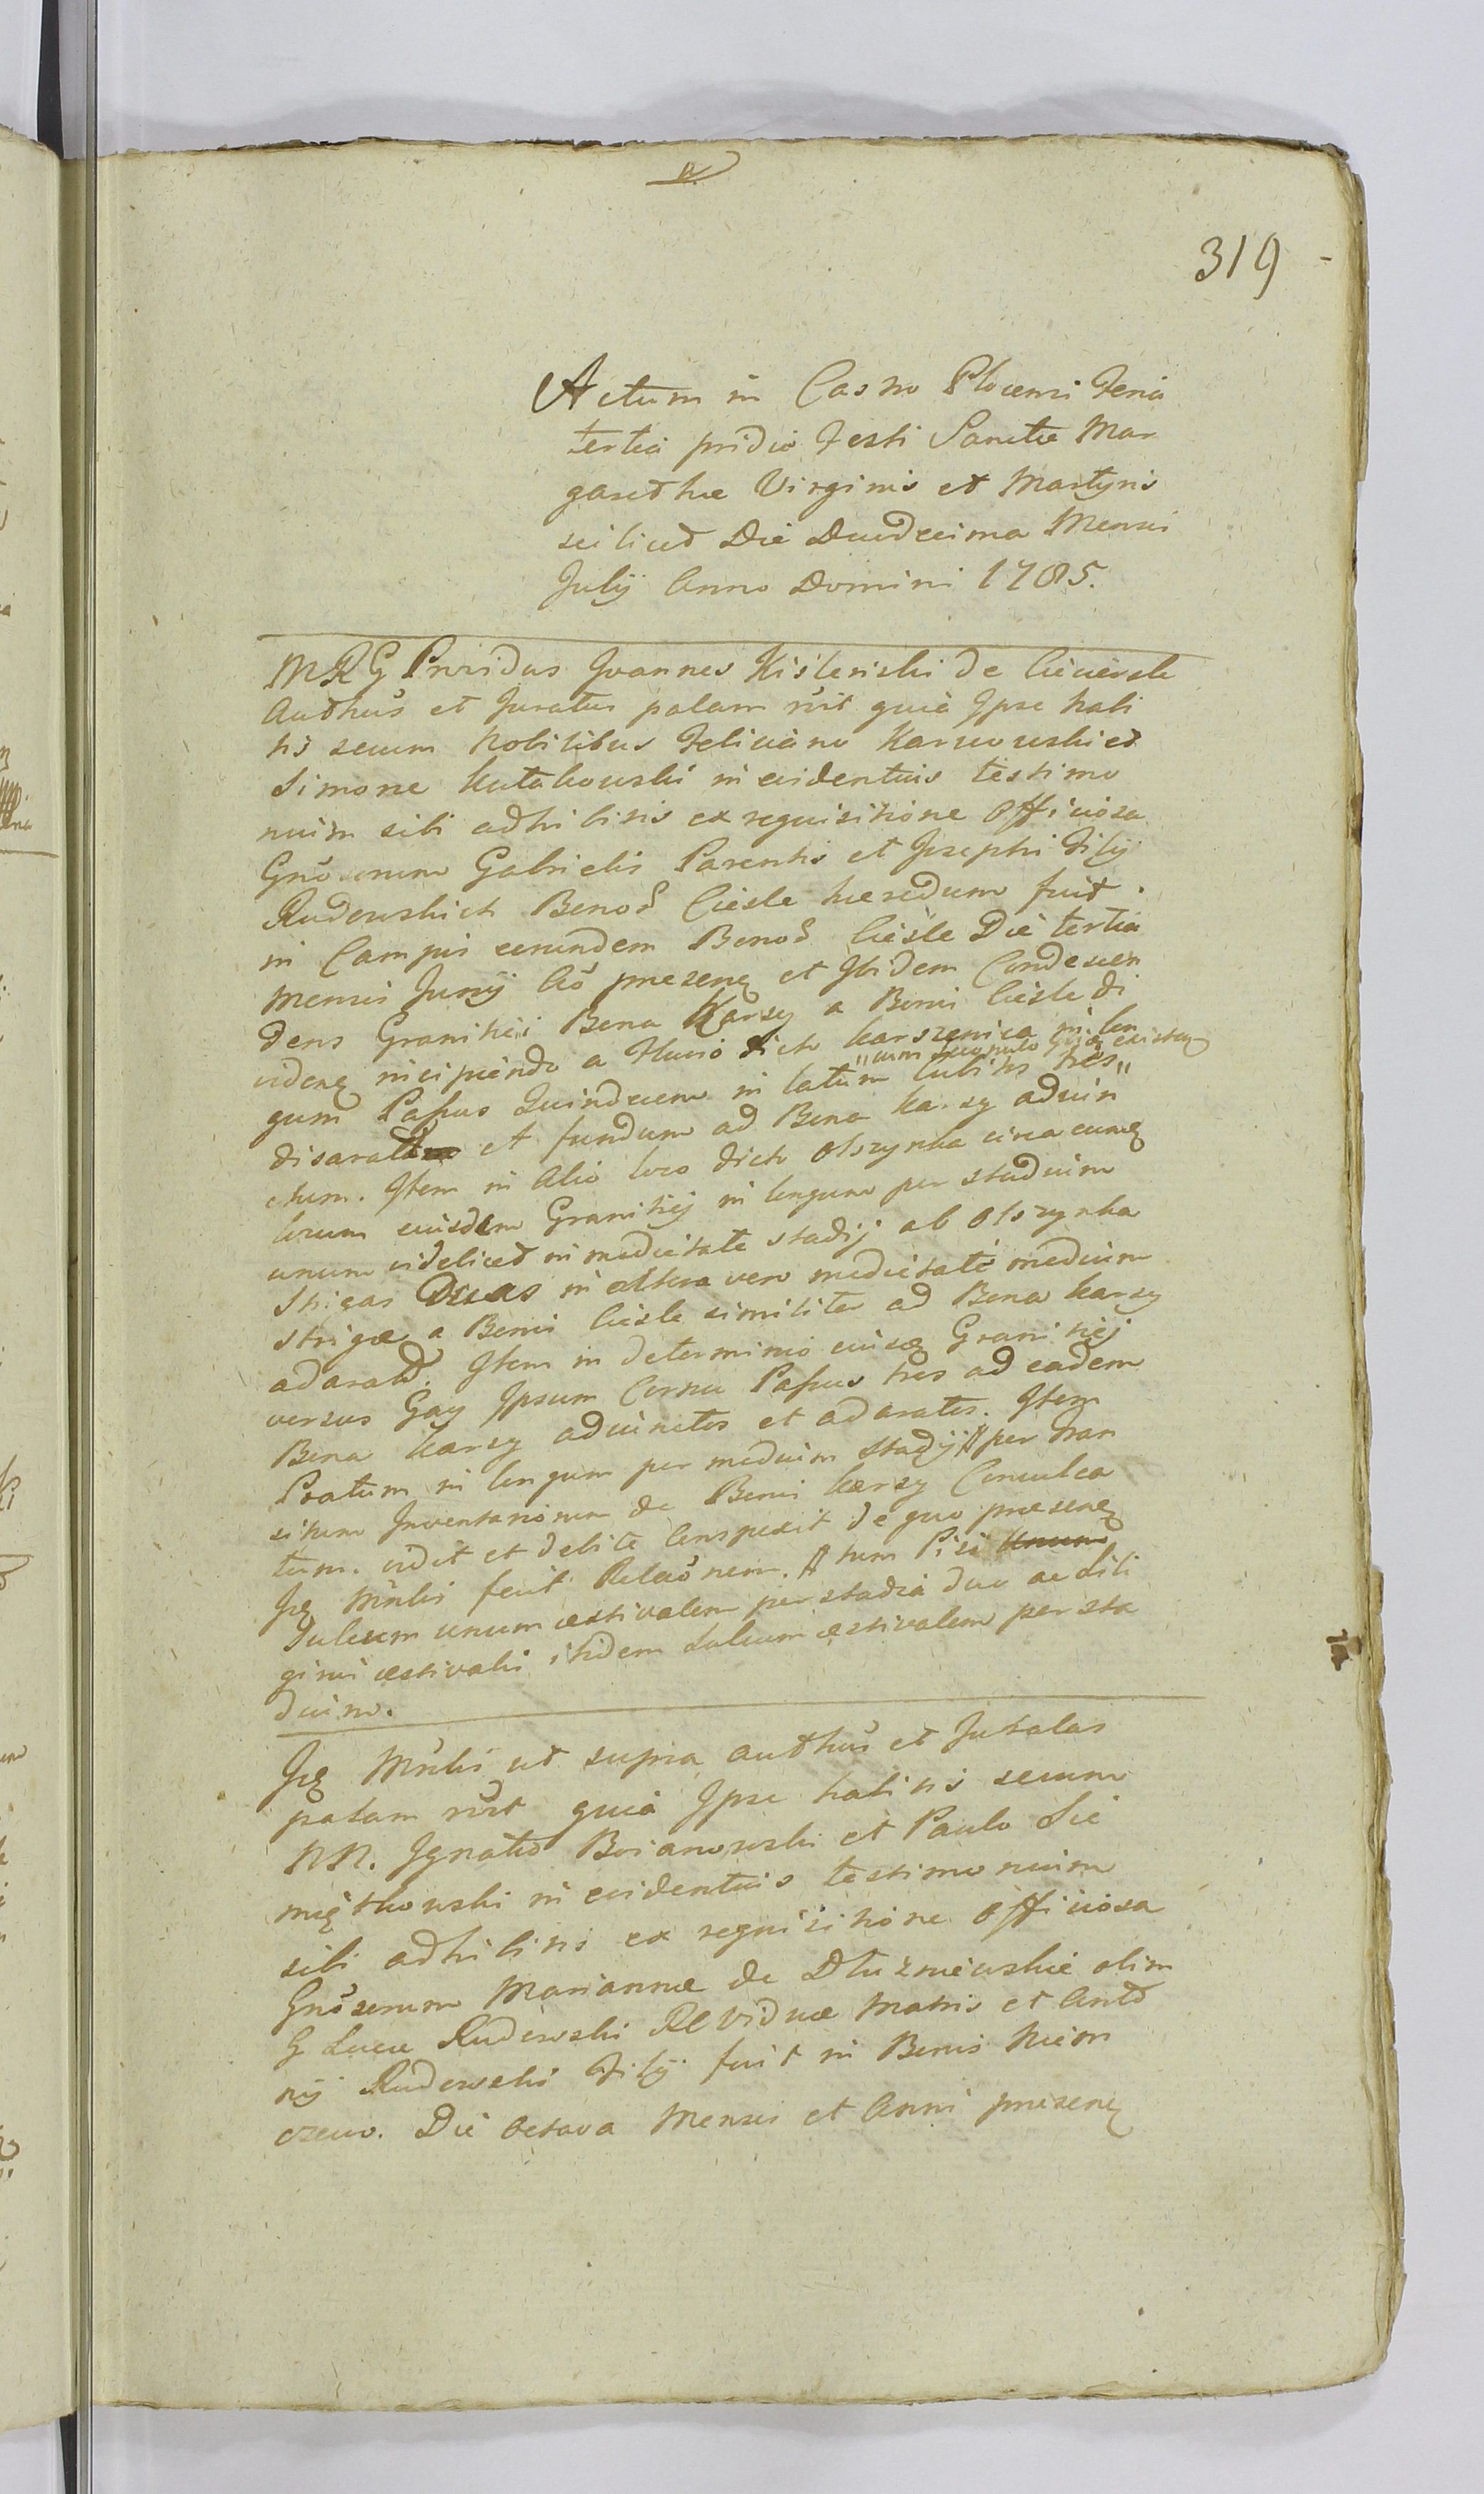 319
Actum in Castro Plocensi Feria
tertia pridie Festi Sanctæ Mar
garethæ Virginis et Martyris
scilicet Die Duodecima Mensis
Julij Anno Domini 1785.
MRG Providus Joannes Kisielinski de
Authũs et Juratus palam rũit quia Ipse habi
tis secum Nobilibus Feliciano Karwowski et
Simone Kutakowski in evidentius testimo
nium sibi adhibitis ex requisitione Officiosa
Gnõsorum Gabrielis Parentis et Josephi Filij
Rudowskich Bonoȓ Ciesle hæredum fuit
in Campis eorundem Bonoȓ Ciesle Die tertia
mensis Junij Aõ præsenę et Ibidem Condescen
dens Granitiei Bona Karsy a Bonis Ciesle di
videnę incipiendo a Fluvio dicto Karszenica in lon
gum Passus Quindecem in latum Cubitos tres
"cum
disarat et fundum ad Bona Karsy advin
ctum. Item in Alio loco dicto Olszynka circa eunę
locum eiusdem Granitiej in longum per stadium
unum videlicet in medietate stadij ab Olszynka
Strigas Duas in altera vero medietate medium
strigæ a Bonis Ciesle similiter ad Bona Karsy
adarat. Item in determinio eiusę Granitiej
versus Gay Ipsum Cornu Passus tres ad eadem
Bona Karsy advinctos et adaratos. Item
Pratum in longum per medium Stadij # per tran
situm Inventariorum de Bonis Karsy Conculca
tum. vidit et debite Conspexit de quo præsenę
Iȩ Mrlis fecit Relaõnem. # tum Pisi
Sulcum unum æstivalem per stadia duo ac Sili
ginis æstivalis itidem Sulcum æstivalem per sta
dium.
Iȩ Mrlis ut supra authũs et Juratus
palam rũit quia Ipse habitis secum
NN. Ignatio Boianowski et Paulo Sie
miątkowski in evidentius testimonium
sibi adhibitis ex requisitione officiosa
Gnõsorum Mariannæ de Dłużniewskie olim
G Lucæ Rudowski RlViduæ Matris et Anto
nij Rudowski Filij fuit in Bonis Niem
czewo. Die Octava Mensis et Anni præsenę